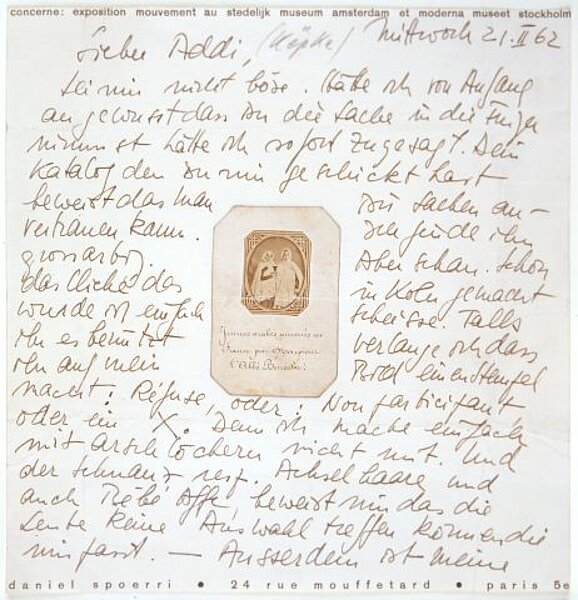 concerne: exposition mouvement au stedelijk museum amsterdam et moderna museet stockholm
Mittwoch 21.II 62
Lieber Addi, (Köpke)
Sei mir nicht böse. Hätte ich von Anfang
an gewusst dass Du die Sache in die Finger
nimmst hätte ich sofort zugesagt. Dein
Katalog den Du mir geschickt hast
beweist das man Dir Sachen an-
vertrauen kann. Ich finde ihn
grossartig. Aber schau. Schon
das Cliché das in Köln gemacht
wurde ist einfach scheisse. Falls
ihr es benützt verlange ich dass
ihr auf mein Bild einen Stempel
macht: Réfusé, oder: Non participant,
oder ein X. Denn ich mache einfach
mit Arschlöchern nicht mit. Und
der Schnauz resp. Achselhaare und
auch Affe, beweist mir das die
Leute keine Auswahl treffen können die
mir passt. — Ausserdem ist meine
Jeunes arabes
France par Monsieur
l'Abbé
daniel spoerri • 24 rue mouffetard • paris 5e